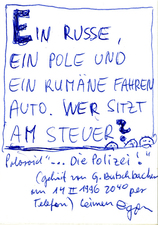 EIN RUSSE,
EIN POLE UND
EIN RUMÄNE FAHREN
AUTO. WER SITZT
AM STEUER?
Polaroid "... Die Polizei!"
(gehört von G. Butschbacher
am 14 II 1996 20⁴⁰ per
Telefon) Leimen